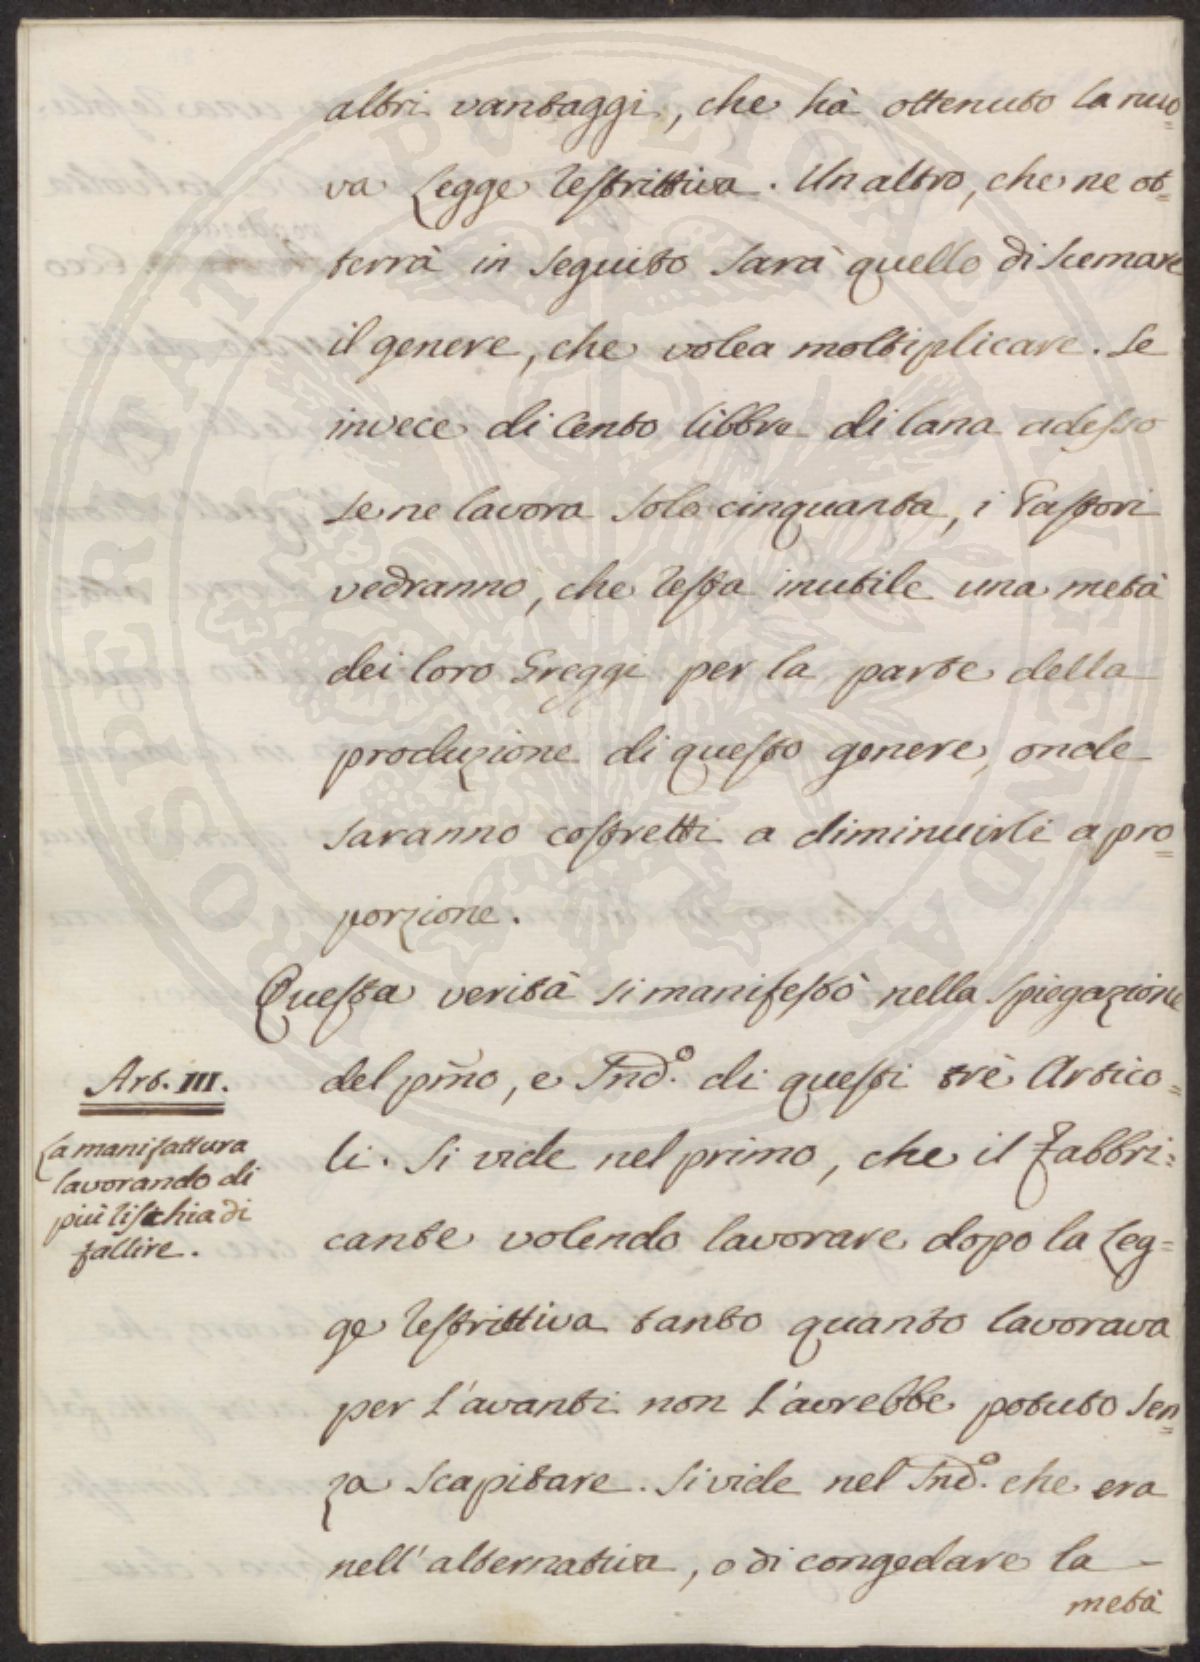 altri vantaggi, che hà ottenuto la nuo=
va Legge restrittiva. Un altro, che ne ot=
terrà in seguito sarà quello di scemare
il genere, che volea moltiplicare. Se
invece di Cento libbre di lana adesso
se ne lavora solo cinquanta, i Pastori
vedranno, che resta inutile una metà
dei loro Greggi per la parte della
produzione di questo genere, onde
saranno costretti a diminuirli a pro=
porzione.
Questa verità si manifestò nella spiegazione
Art. III.
La manifattura
lavorando di
più rischia di
fallire.
del pm̃o, e Sñd.º di questi trè Artico=
li. Si vide nel primo, che il Fabbri=
cante volendo lavorare dopo la Leg=
ge restrittiva tanto quanto lavorava
per l'avanti non l'avrebbe potuto sen=
za scapitare. Si vide nel Sñd.º che era
nell'alternativa, o di congedare la
metà
PROSPERITATI PVBLICAE AVGENDAE